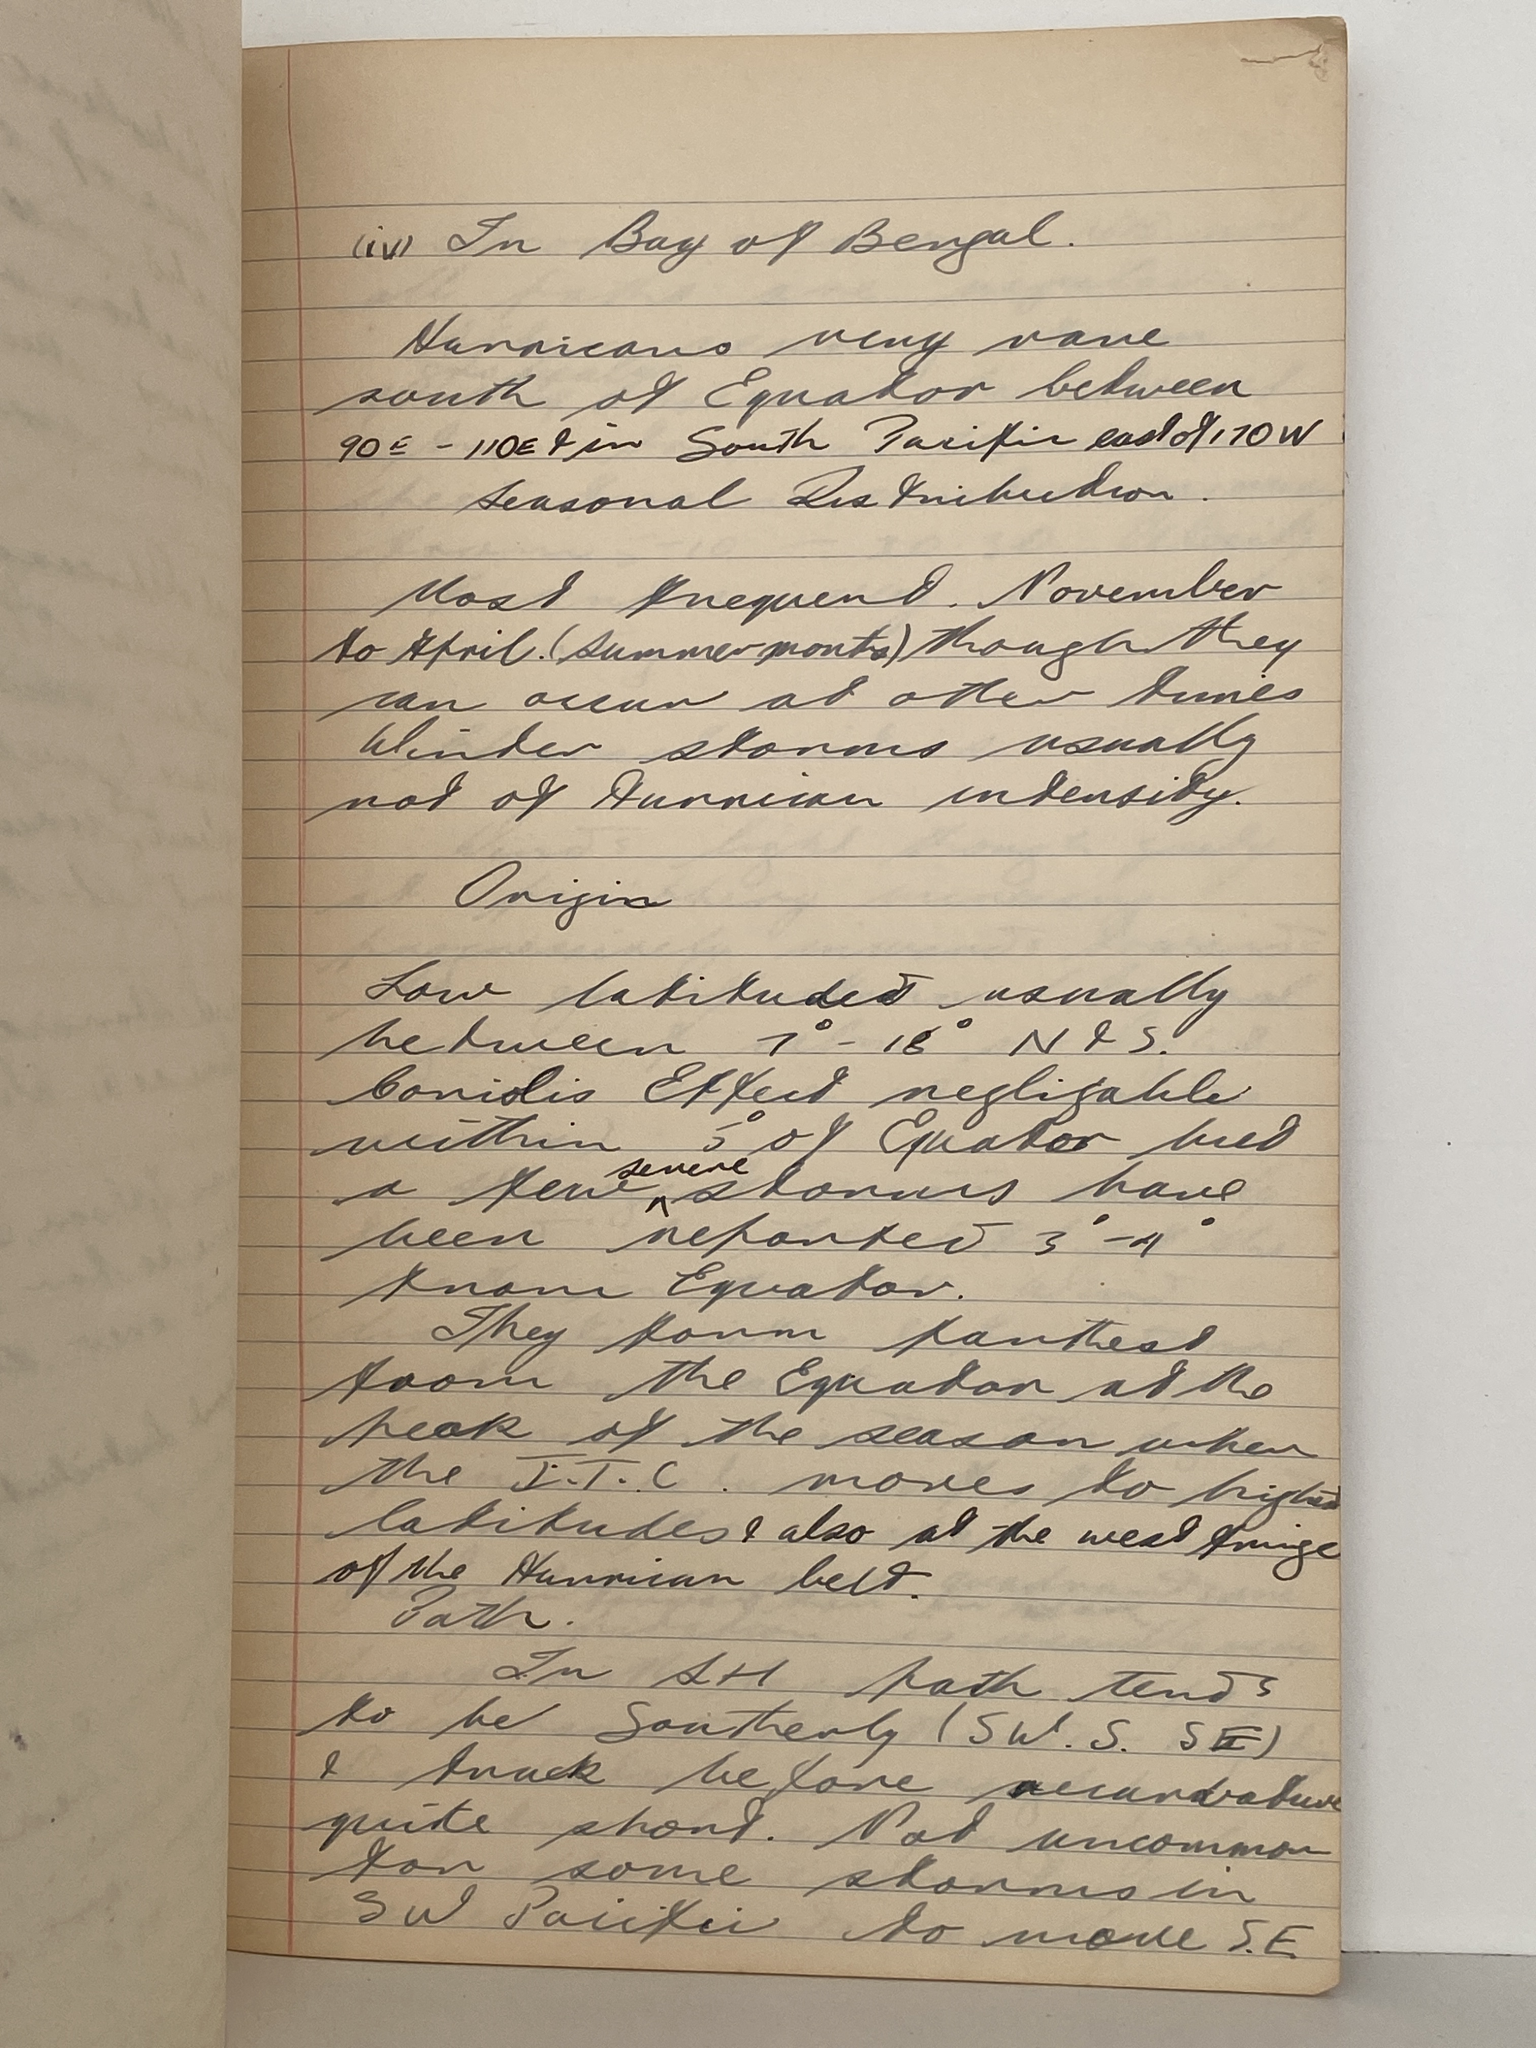 (iv) In Bay of Bengal.
Hurricans very rare
south of Equator between
90E - 110E & in South Pacific east of 170W
Seasonal Distribution.
Most frequent. November
to April. (summer months) though they
can occur at other times
Winter storms usually
not of Hurrican intensity.
Origin
Low latitudes usually
between 7° - 18° N & S.
Coriolis Effect negligable
within 5° of Equator but
a few severe storms have
been reported 3° - 4°
from Equator.
They form farthest
from the Equator at the
peak of the season when
the I.T.C. moves to higher
latitudes & also at the west fringe
of the Hurrican belt.
Path.
In SH path tends
to be Southerly (SW. S. SE)
& track before recurvature
quite short. Not uncommon
for some storms in
SW Pacific to move S.E.